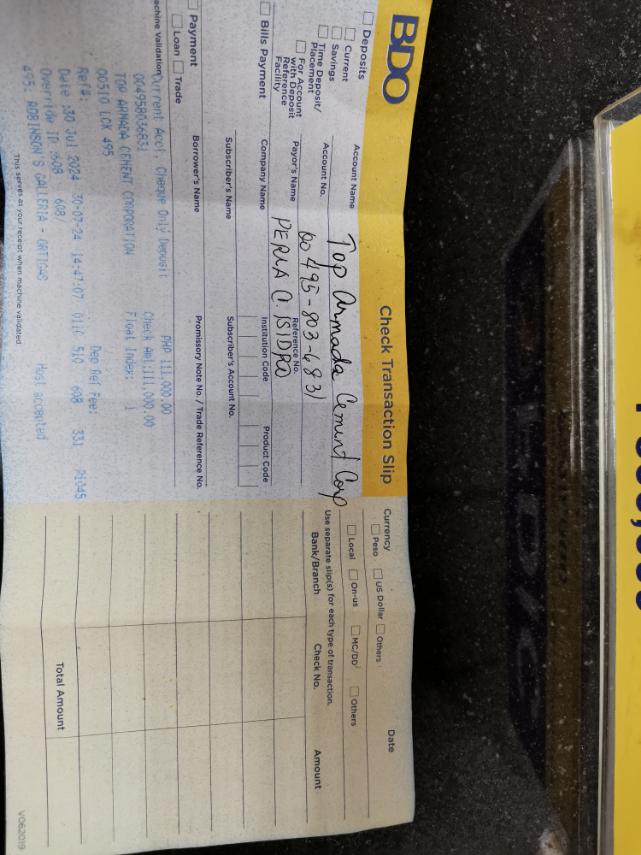 BDO
Check Transaction Slip
Deposits
Current
Savings
Time Deposit/
Placement
For Account
with Deposit
Reference
Facility
Bills Payment
Payment
Loan
Trade
Account Name
Top Armada Cement Corp
Account No.
00 495-803-6831
Payor's Name
Reference No.
PERLA C. ISIDRO
Company Name
Institution Code
Product Code
Subscriber's Name
Subscriber's Account No.
Borrower's Name
Promissory Note No. / Trade Reference No.
achine Validation
Current Acct. Cheque Only Deposit
PHP 111,000.00
004958036831
Check Amt:111,000.00
TOP ARMADA CEMENT CORPORATION
Float Index: 1
00510 LCK 495
Dep Ref Fee:
Ref#:
Date :30 Jul 2024 30-07-24 14:47:07 0110 510 608 331
Override ID :608 608/
Host accepted
495. ROBINSON'S GALLERIA - ORTIGAS
This serves as your receipt when machine validated.
Currency
Peso
US Dollar
Others
Date
Local
On-us
MC/DD
Others
Use separate slip(s) for each type of transaction.
Bank/Branch
Check No.
Amount
Total Amount
V062019